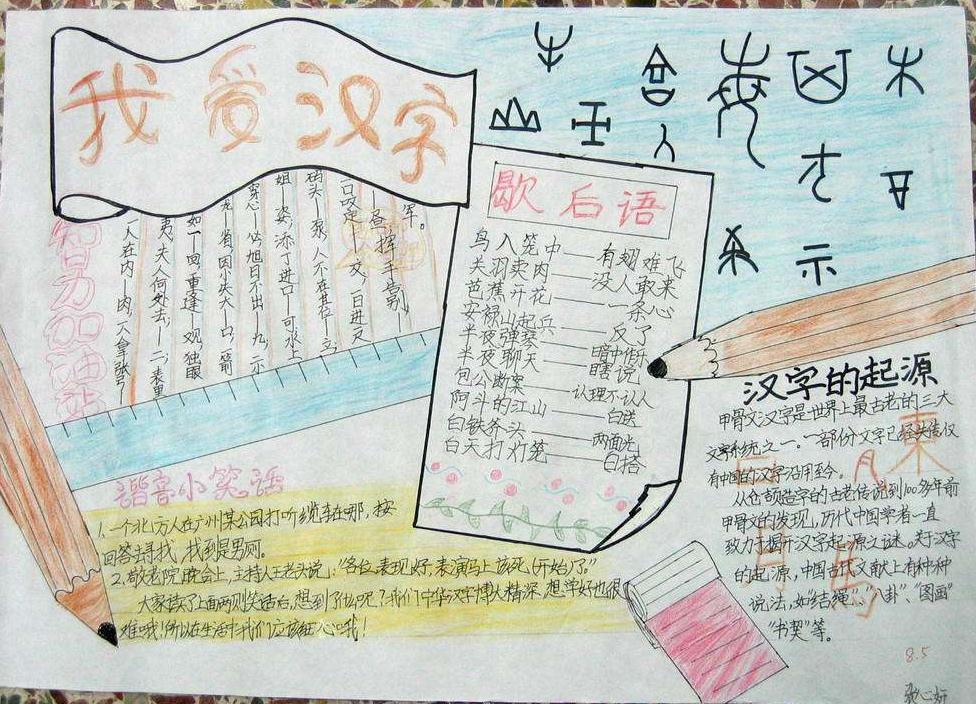 我爱汉字
歇后语
鸟入笼中——有翅难飞
关羽卖肉——没人敢来
芭蕉开花——一条心
安禄山起兵——反了
半夜弹琴——暗中作乐
半夜聊天——瞎说
包公断案——认理不认人
阿斗的江山——白送
白铁斧头——两面光
白天打灯笼——白搭
智力加油站
军。
一人在内—肉,
夷,夫人何处去,—二,表里
如一—回,重逢—观,独眼
省,因小失大—口,
穿心—必,旭日不出—九,示
姐—姿,添丁进口—可,水上
码头—泵,人不在其位—立,
一口咬定—交,百进一
—昼,挥手告别—
谐音小笑话
1、一个北方人在广州某公园打听缆车在哪,按
回答去寻找,找到是男厕。
2、敬老院晚会上,主持人王老头说:"各位表现好,表演马上该死(开始)了。"
大家读了上面两则笑话后,想到了什么呢?我们中华汉字博大精深,想学好也很
难哦!所以在生活中我们应该细心哦!
汉字的起源
甲骨文汉字是世界上最古老的三大
文字系统之一。一部份文字已经失传仅
有中国的汉字沿用至今。
从仓颉造字的古老传说到100多年前
甲骨文的发现,历代中国学者一直
致力于揭开汉字起源之谜。关于汉字
的起源,中国古代文献上有种种
说法,如"结绳"、"八卦"、"图画"
"书契"等。
8.5